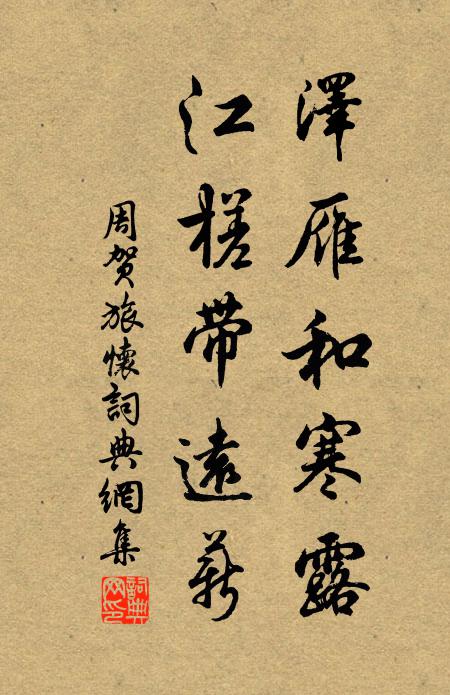 澤雁和寒露
江槎帶遠薪
周贺旅懷詞典網集
詞典網印